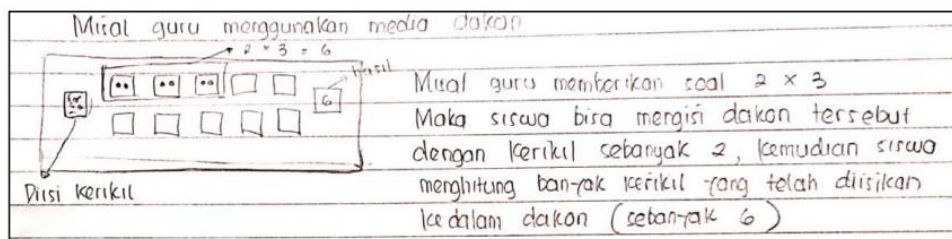 Misal guru menggunakan media dakon
2 × 3 = 6
hasil
6
Diisi kerikil
Misal guru memberikan soal 2 × 3
Maka siswa bisa mengisi dakon tersebut
dengan kerikil sebanyak 2, kemudian siswa
menghitung banyak kerikil yang telah diisikan
kedalam dakon (sebanyak 6)